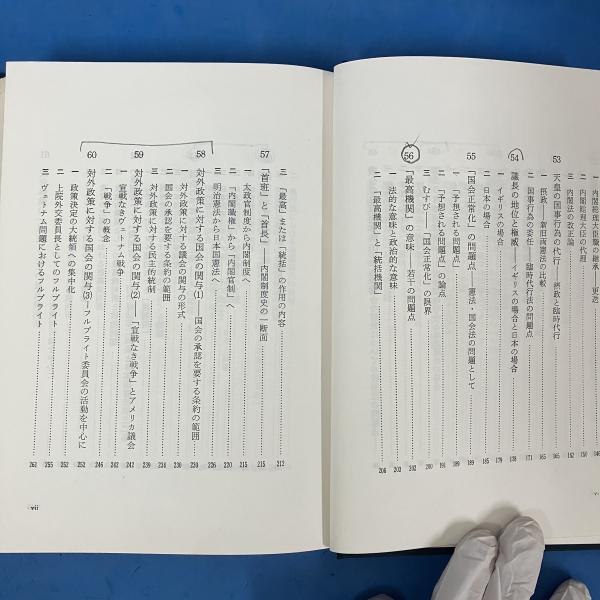 一 内閣総理大臣職の継承――更迭 146
二 内閣総理大臣の代理 150
三 内閣法の改正論 162
53 天皇の国事行為の代行――摂政と臨時代行 165
一 摂政――新旧両憲法の比較 165
二 国事行為の委任――臨時代行法の問題点 171
54 議長の地位と権威――イギリスの場合と日本の場合 178
一 イギリスの場合 179
二 日本の場合 185
55 「国会正常化」の問題点――憲法・国会法の問題として 189
一 「予想される問題点」 189
二 「予想される問題点」の論点 191
三 むすび――「国会正常化」の限界 200
56 「最高機関」の意味――若干の問題点 202
一 法的な意味と政治的な意味 202
二 「最高機関」と「統括機関」 206
v
三 「最高」または「統括」の作用の内容 212
57 「首班」と「首長」――内閣制度史の一断面 215
一 太政官制度から内閣制度へ 215
二 「内閣職権」から「内閣官制」へ 220
三 明治憲法から日本国憲法へ 226
58 対外政策に対する国会の関与(1)――国会の承認を要する条約の範囲 228
一 対外政策に対する議会の関与の形式 228
二 国会の承認を要する条約の範囲 234
三 対外政策に対する民主的統制 239
59 対外政策に対する国会の関与(2)――「宣戦なき戦争」とアメリカ議会 242
一 宣戦なきヴェトナム戦争 242
二 「戦争」の概念 246
60 対外政策に対する国会の関与(3)――フルブライト委員会の活動を中心に 252
一 政策決定の大統領への集中化 252
二 上院外交委員長としてのフルブライト 255
三 ヴェトナム問題におけるフルブライト 261
vii